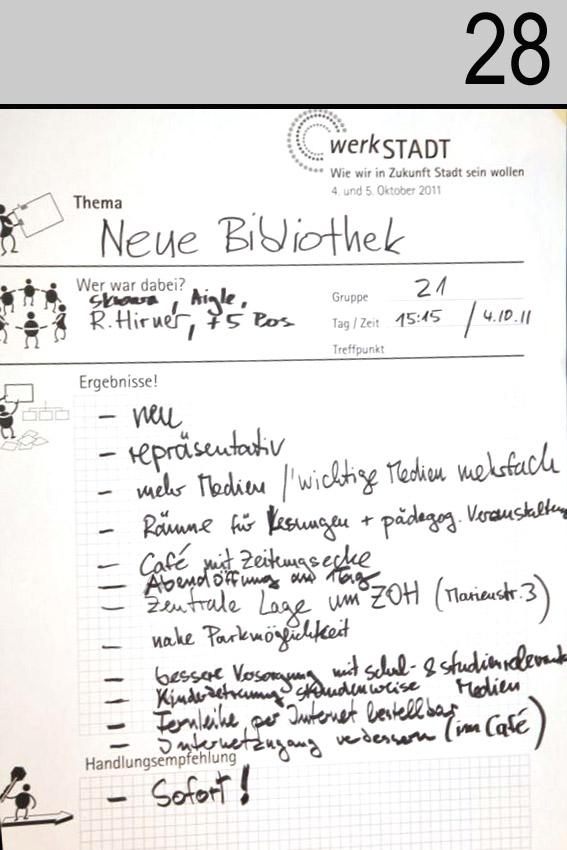 28
werkSTADT
Wie wir in Zukunft Stadt sein wollen
4. und 5. Oktober 2011
Thema
Neue Bibliothek
Wer war dabei?
, Aigle,
R. Hirner, + 5 Bos
Gruppe 21
Tag / Zeit 15:15 / 4.10.11
Treffpunkt
Ergebnisse!
– neu
– repräsentativ
– mehr Medien / wichtige Medien mehrfach
– Räume für Lesungen + pädagog. Veranstaltung
– Café mit Zeitungsecke
– Abendöffnung am Tag
– Zentrale Lage um ZOH (Marienstr. 3)
– nahe Parkmöglichkeit
– bessere Versorgung mit schul- & studienrelevant
– Kinderbetreuung stundenweise Medien
– Fernleihe per Internet bestellbar
– Internetzugang verbessern (im Café)
Handlungsempfehlung
– Sofort!